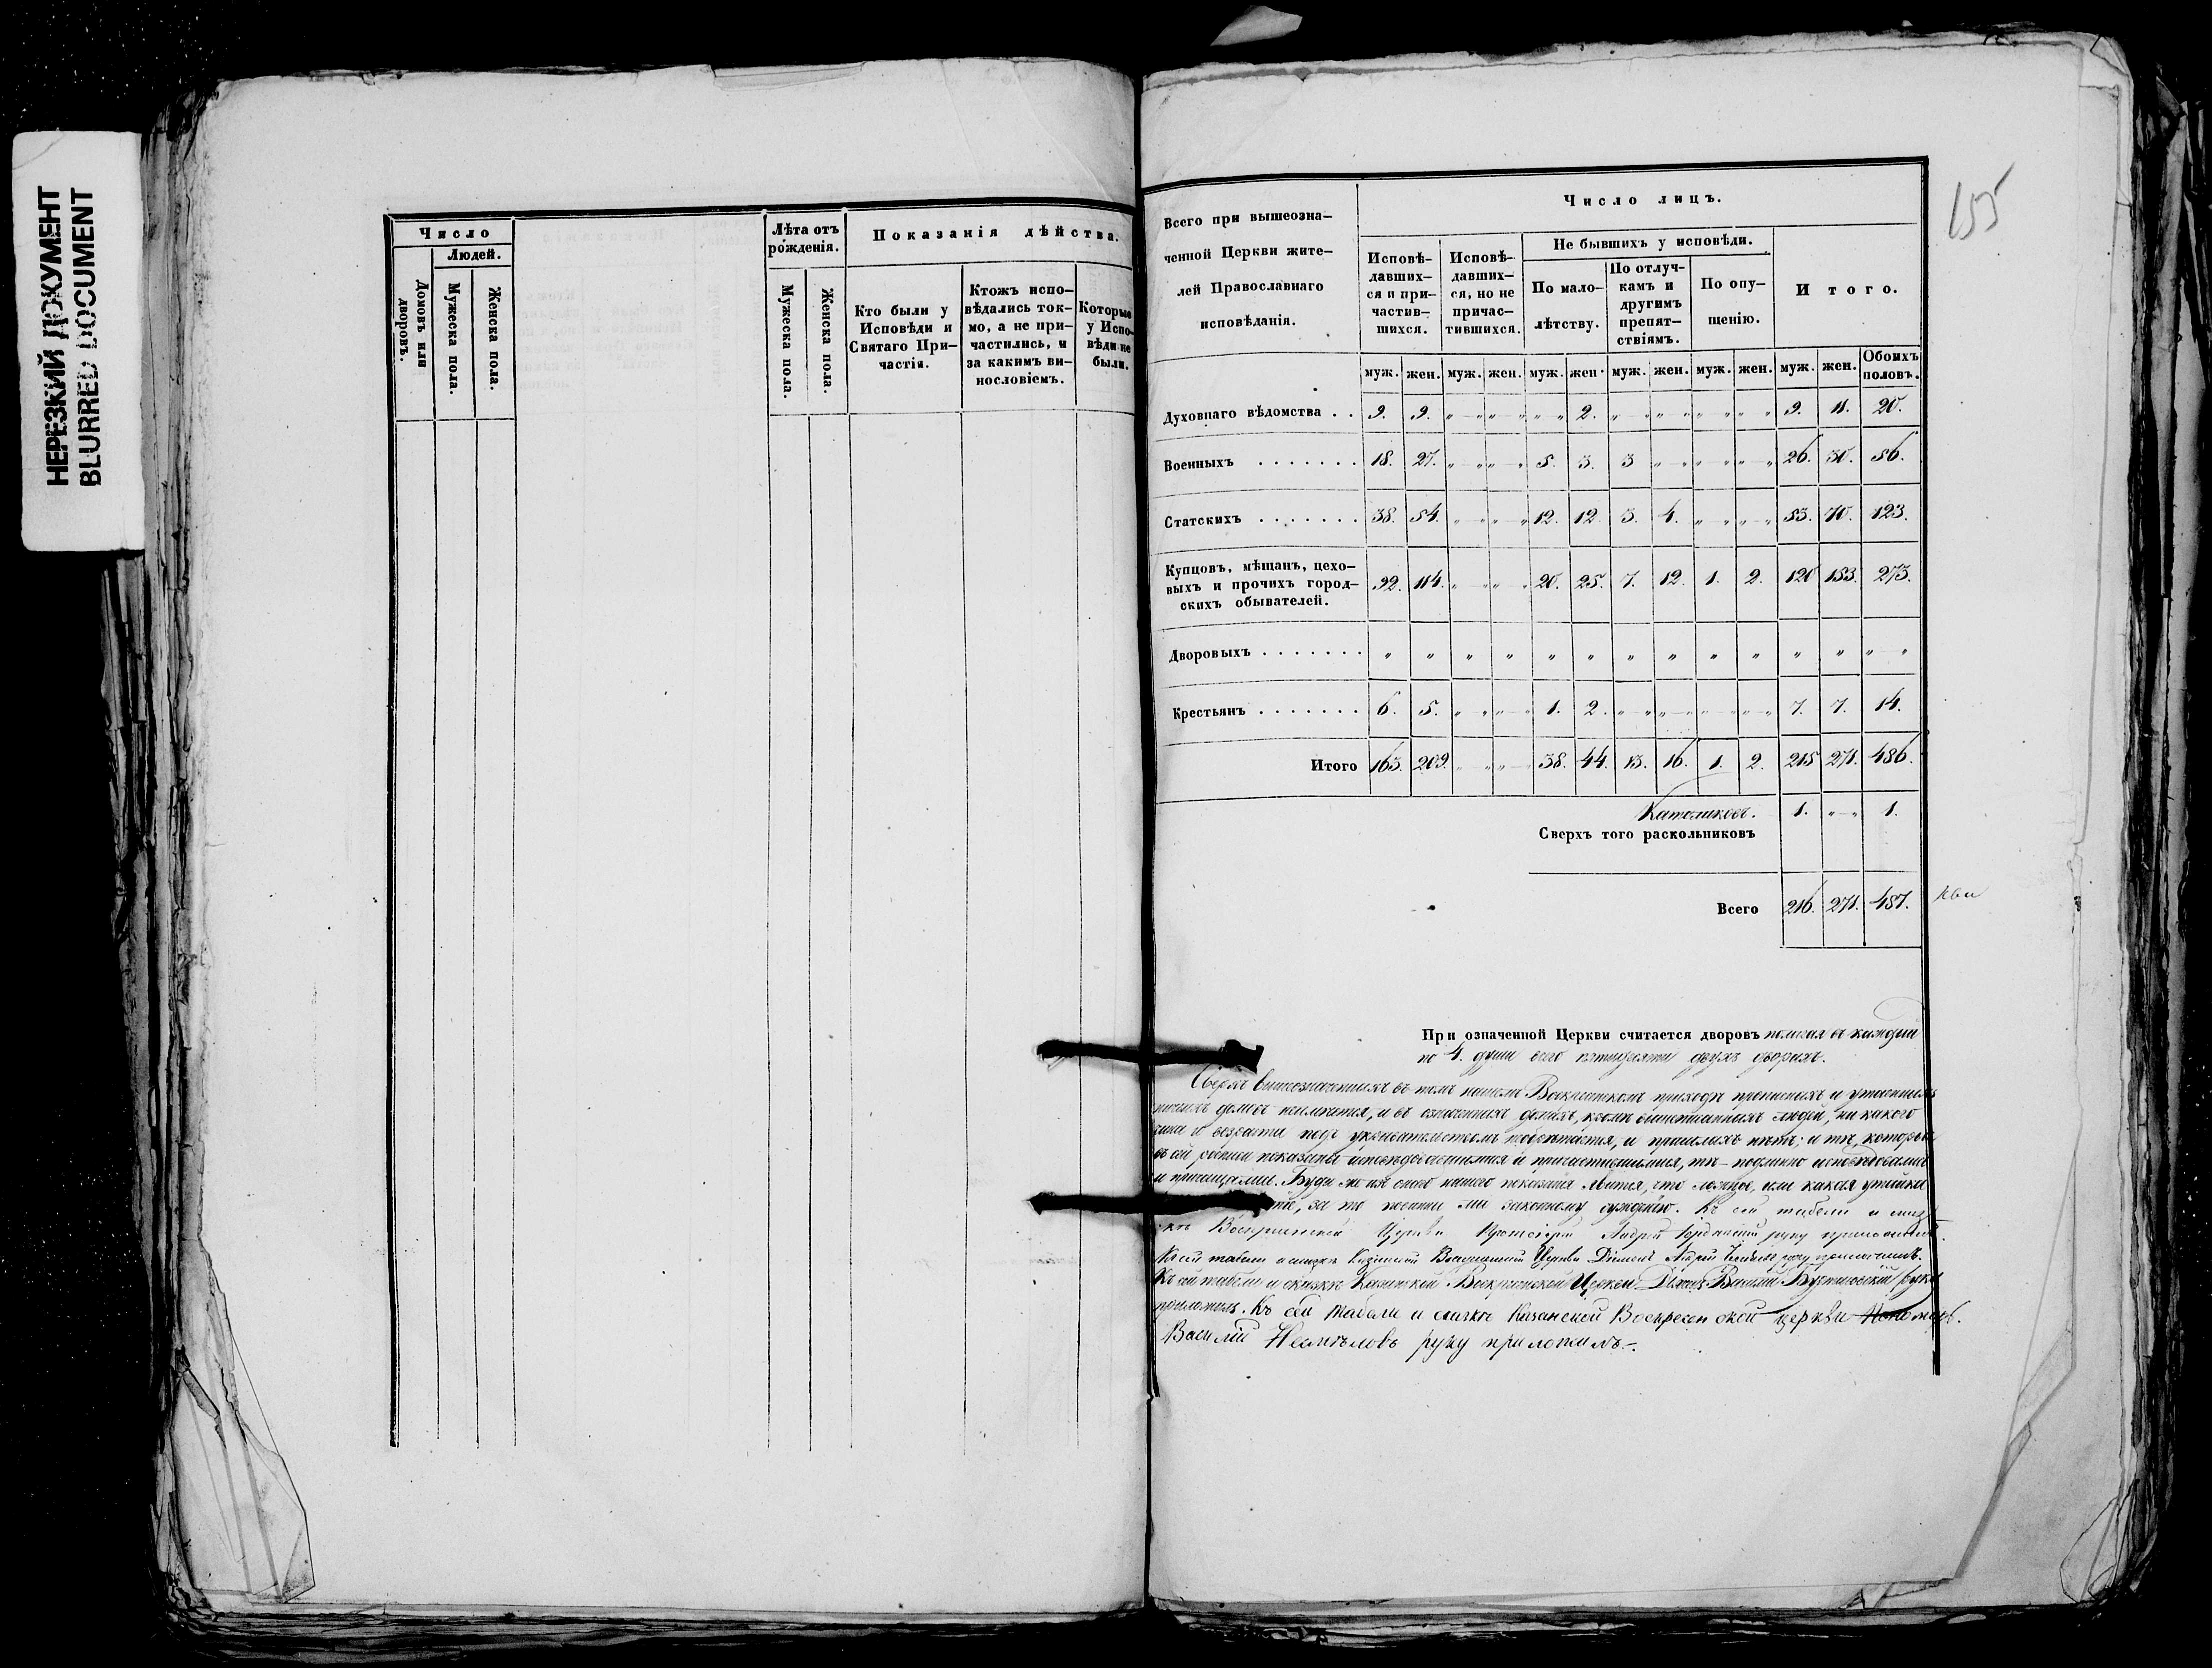 НЕРЕЗКИЙ ДОКУМЕНТ
BLURRED DOCUMENT
Число
Людей.
Домовъ или дворовъ.
Мужеска пола.
Женска пола.
Лѣта отъ рожденія.
Мужеска пола.
Женска пола.
Показанія дѣйства.
Кто были у Исповѣди и Святаго Причастія.
Ктожъ исповѣдались токмо, а не причастились, и за какимъ винословіемъ.
Которые у Исповѣди не были.
155
Всего при вышеозна-
ченной Церкви жите-
лей Православнаго
исповѣданія.
Число лицъ.
Исповѣ-
давших-
ся и при-
частив-
шихся.
Исповѣ-
давших-
ся, но не
причас-
тившихся.
Не бывшихъ у исповѣди.
По мало-
лѣтству.
По отлуч-
камъ и
другимъ
препят-
ствіямъ.
По опу-
щенію.
Итого.
муж. жен. муж. жен. муж. жен. муж. жен. муж. жен. муж. жен. Обоихъ половъ.
Духовнаго вѣдомства . . 9. 9. " " " 2. " " " " 9. 11. 20.
Военныхъ . . . . . . . 18. 27. " " 5. 3. 3 " " " 26. 30. 56.
Статскихъ . . . . . . . 38. 54. " " 12. 12. 3. 4. " " 53. 70. 123.
Купцовъ, мѣщанъ, цехо-
выхъ и прочихъ город-
скихъ обывателей. 92. 114. " " 20. 25. 7. 12. 1. 2. 120 153. 273.
Дворовыхъ . . . . . . . " " " " " " " " " " " " "
Крестьянъ . . . . . . . 6. 5. " " 1. 2. " " " " 7. 7. 14.
Итого 163. 209. " " 38. 44. 13. 16. 1. 2. 215 271. 486.
Католиковъ. 1. " 1.
Сверхъ того раскольниковъ
Всего 216. 271. 487.
При означенной Церкви считается дворовъ полагая въ каждый
по 4. души
Сверхъ вышеозначенныхъ въ томъ нашемъ Воскресенскомъ приходѣ прописныхъ и утаенныхъ
домовъ неимѣется, и въ означенныхъ домахъ, кромѣ вышеписанныхъ людей, ни какого
чина и возраста подъ укрывательствомъ и пришлыхъ нѣтъ; и тѣ, которые
въ сей росписи показаны исповѣдавшимися и причастившимися, тѣ подлинно исповѣдовались
и причащались. Буде же изъ сего нашего показанія явится, что ложное, или какая утайка
за то повинны мы законному сужденію. Къ сей табели и сказ-
кѣ Воскресенской Церкви Протоіерей Андрей руку приложилъ.
Къ сей табели и сказкѣ Казанской Воскресенской Церкви Діаконъ Андрей руку приложилъ.
Къ сей табели и сказкѣ Казанской Воскресенской Церкви Василій руку
приложилъ. Къ сей табели и сказкѣ Казанской Воскресенской церкви Пономарь.
Василій Несмѣловъ руку приложилъ.